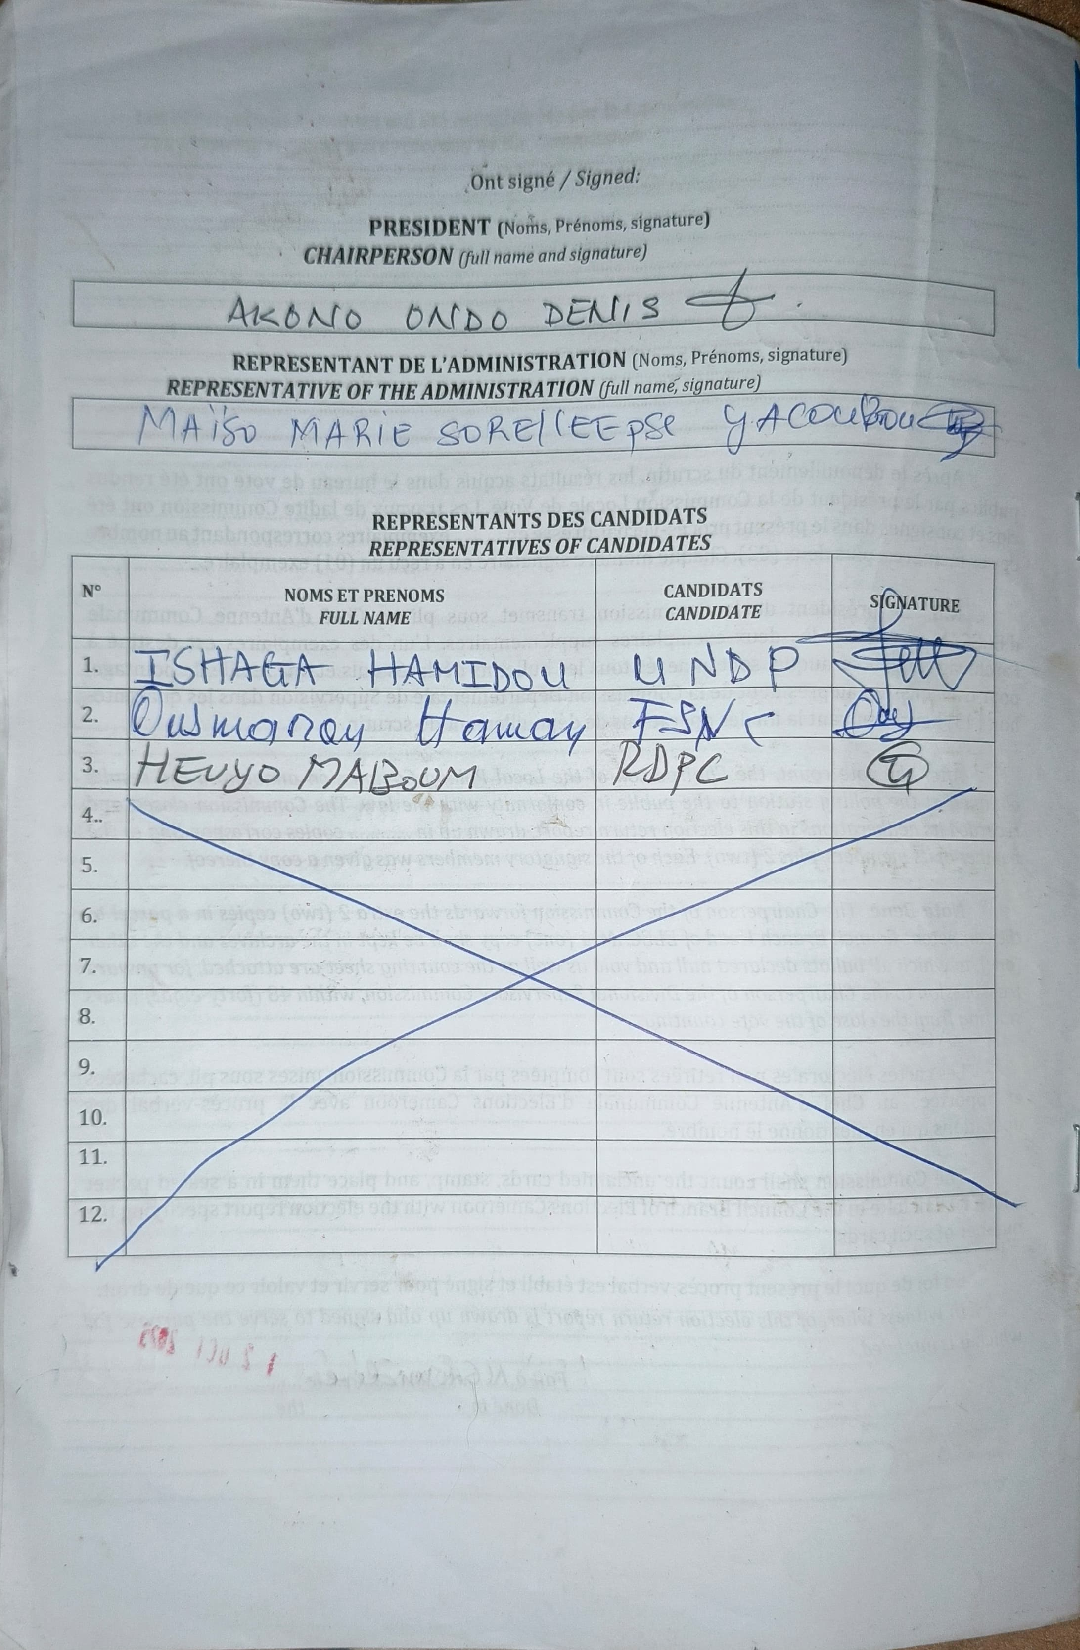 Ont signé / Signed:
PRESIDENT (Noms, Prénoms, signature)
CHAIRPERSON (full name and signature)
AKONO ONDO DENIS
REPRESENTANT DE L'ADMINISTRATION (Noms, Prénoms, signature)
REPRESENTATIVE OF THE ADMINISTRATION (full name, signature)
MAÏSO MARIE SORELLE Epse YACOUBOU
REPRESENTANTS DES CANDIDATS
REPRESENTATIVES OF CANDIDATES
N° NOMS ET PRENOMS CANDIDATS SIGNATURE
FULL NAME CANDIDATE
1. ISHAGA HAMIDOU UNDP
2. Ousmanou Hamay FSNC
3. HEUYO MABOUM RDPC
4..
5.
6.
7.
8.
9.
10.
11.
12.